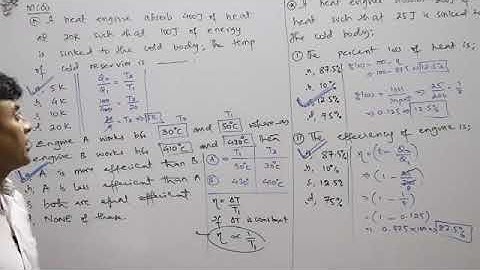 MCQs
A heat engine absorb 400J of heat
at 20K such that 100J of energy
is sinked to the cold body; the temp
of cold reservoir is
a, 5K
b, 4K
c, 10K
d, 20K
Q₂/Q₁ = T₂/T₁
100/400 = T₂/20
20/4 = T₂ => 5K
T₂ T₁
Engine A works b/w 30°C and 50°C whereas
engine B works b/w 410°C and 430°C then
a, A is more efficient than B
b, A is less efficient than A
c, both are equal efficient
d, NONE of these
η = ΔT/T₁
ΔT is constant
η ∝ 1/T₁
heat such that 25J is sinked to
the cold body;
① The percent loss of heat is;
a, 87.5%
b, 10%
c, 12.5%
d, 75%
=> 25/200 = 1/8
=> 0.125 => 12.5%
② The efficiency of engine is;
a, 87.5%
b, 10%
c, 12.5%
d, 75%
η = (1 - Q₂/Q₁)
=> (1 - 25/200)
=> (1 - 1/8)
=> (1 - 0.125)
=> 0.875 × 100 => 87.5%